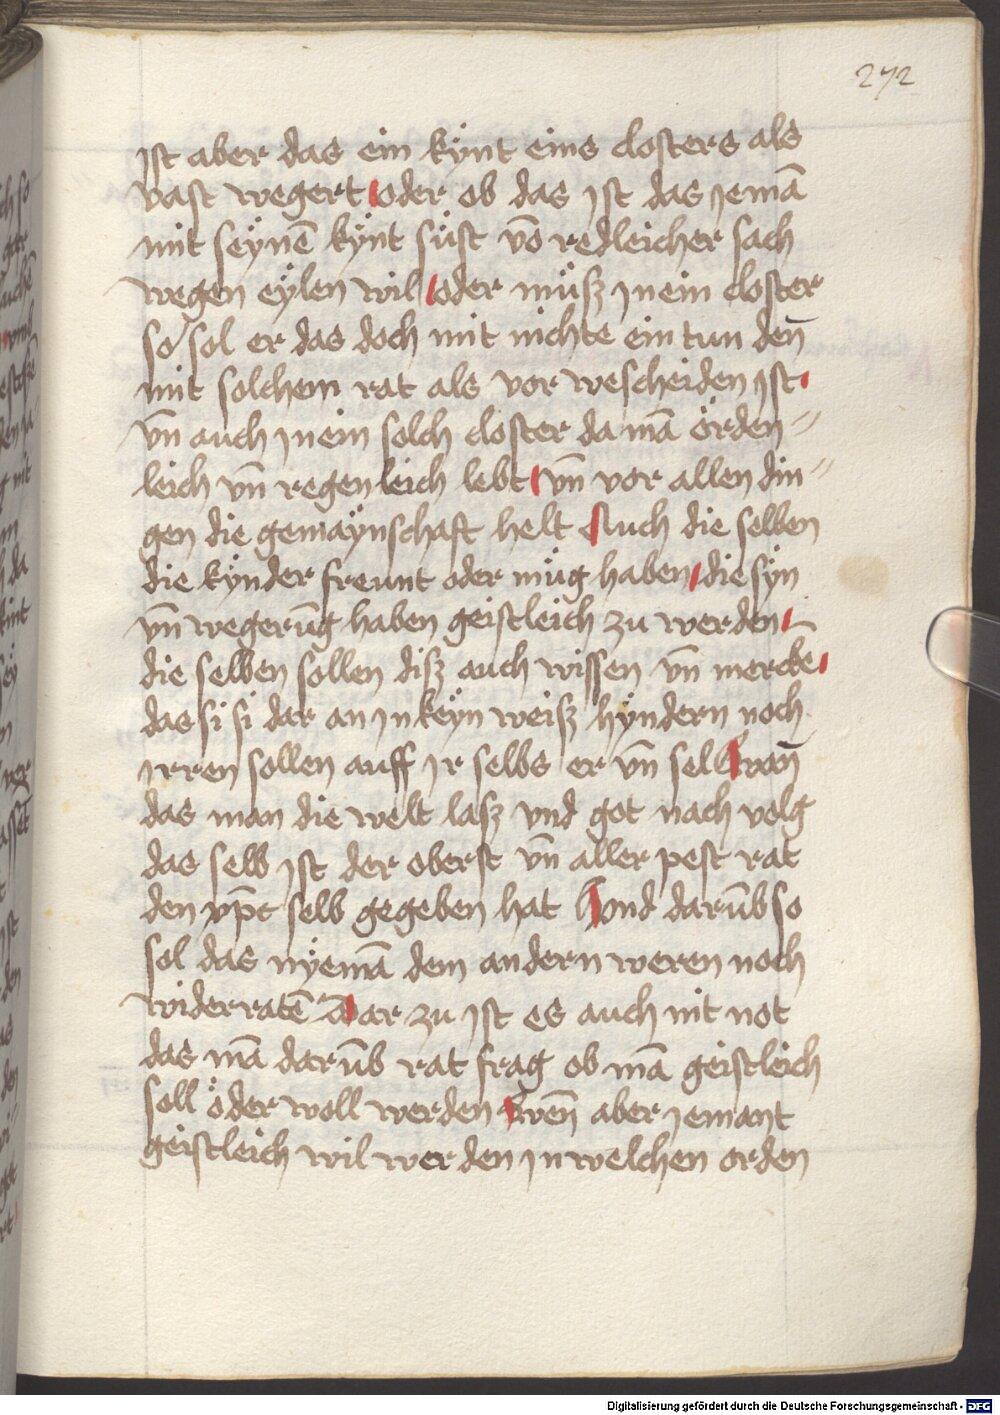 272
Ist aber das ein kÿnt eins closters als
vast wegert oder ob das Ist das Jemā
mit seÿnē kÿnt süst vō redleicher sach
wegen eÿlen wil oder müsz Jn ein closter
so sol er das doch mit nichte ein tun den̄
mit solchem rat als vor wescheiden Jst
vn̄ auch Jn ein solch closter da mā örden⸗
leich vn̄ regenleich lebt vn̄ vor allen din⸗
gen die gemaÿnschaft helt Auch die selben
die kÿnder freunt oder müg haben die sÿn
vn̄ wegerūg haben geistleich zu werden
die selben sollen disz auch wissen vn̄ mercke
das si si dar an Jn keÿn weisz hÿndern noch
Jrren sollen auff Jr selbs er vn̄ sel wan̄
das man die welt lasz vnd got nach volg
das selb Jst der oberst vn̄ aller pest rat
den xp̄c selb gegeben hat Vnd darūb so
sol das nÿemā dem andern weren noch
widerratē Dar zu Jst es auch nit not
das mā darūb rat frag ob mā geistleich
soll öder woll werden Wen̄ aber Jemant
geistleich wil werden Jn welchen orden
Digitalisierung gefördert durch die Deutsche Forschungsgemeinschaft - DFG